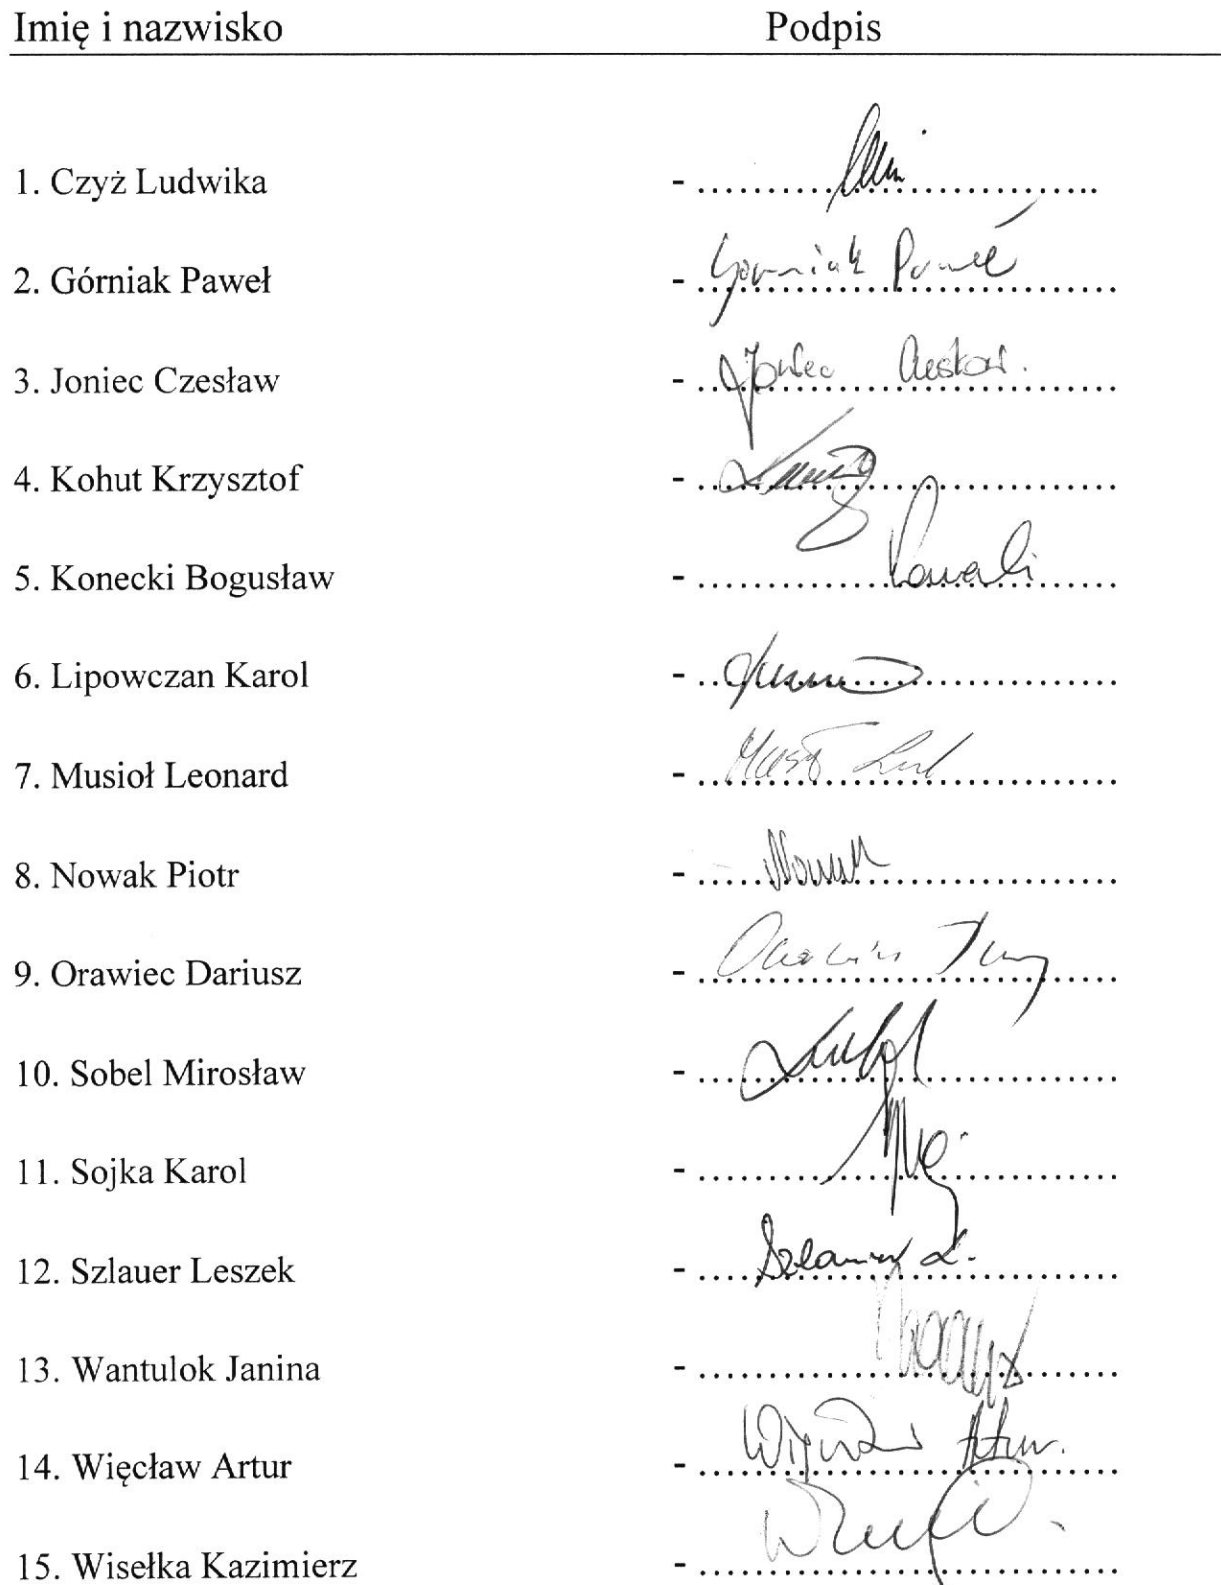 Imię i nazwisko Podpis
1. Czyż Ludwika - ....................................
2. Górniak Paweł - Górniak Paweł
3. Joniec Czesław - Joniec Czesław.
4. Kohut Krzysztof - ....................................
5. Konecki Bogusław - ....................................
6. Lipowczan Karol - ....................................
7. Musioł Leonard - ....................................
8. Nowak Piotr - Nowak
9. Orawiec Dariusz - ....................................
10. Sobel Mirosław - ....................................
11. Sojka Karol - ....................................
12. Szlauer Leszek - Szlauer L.
13. Wantulok Janina - ....................................
14. Więcław Artur - Więcław Artur.
15. Wisełka Kazimierz - ....................................